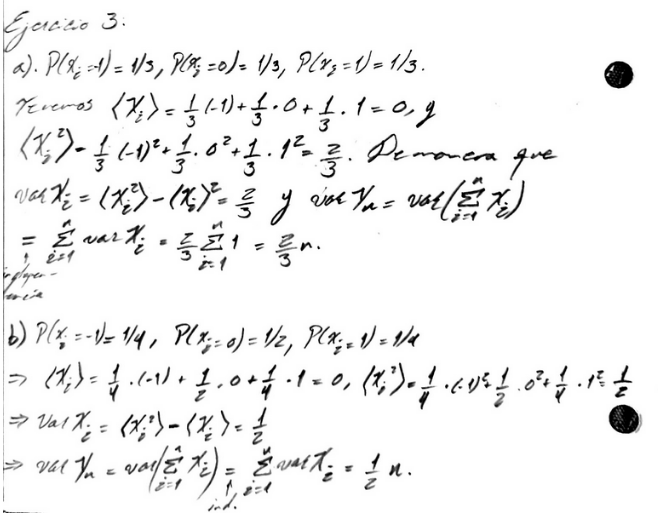 Ejercicio 3:
a). P(X_i=-1)=1/3, P(X_i=0)=1/3, P(X_i=1)=1/3.
Tenemos ⟨X_i⟩ = 1/3(-1) + 1/3·0 + 1/3·1 = 0, y
⟨X_i²⟩ = 1/3(-1)² + 1/3·0² + 1/3·1² = 2/3. De manera que
var X_i = ⟨X_i²⟩ - ⟨X_i⟩² = 2/3 y var Y_n = var(∑_{i=1}^n X_i)
= ∑_{i=1}^n var X_i = 2/3 ∑_{i=1}^n 1 = 2/3 n.
↑
indepen-
dencia
b) P(X_i=-1)=1/4, P(X_i=0)=1/2, P(X_i=1)=1/4
⇒ ⟨X_i⟩ = 1/4·(-1) + 1/2·0 + 1/4·1 = 0, ⟨X_i²⟩ = 1/4·(-1)² + 1/2·0² + 1/4·1² = 1/2
⇒ Var X_i = ⟨X_i²⟩ - ⟨X_i⟩ = 1/2
⇒ var Y_n = var(∑_{i=1}^n X_i) = ∑_{i=1}^n var X_i = 1/2 n.
↑
ind.